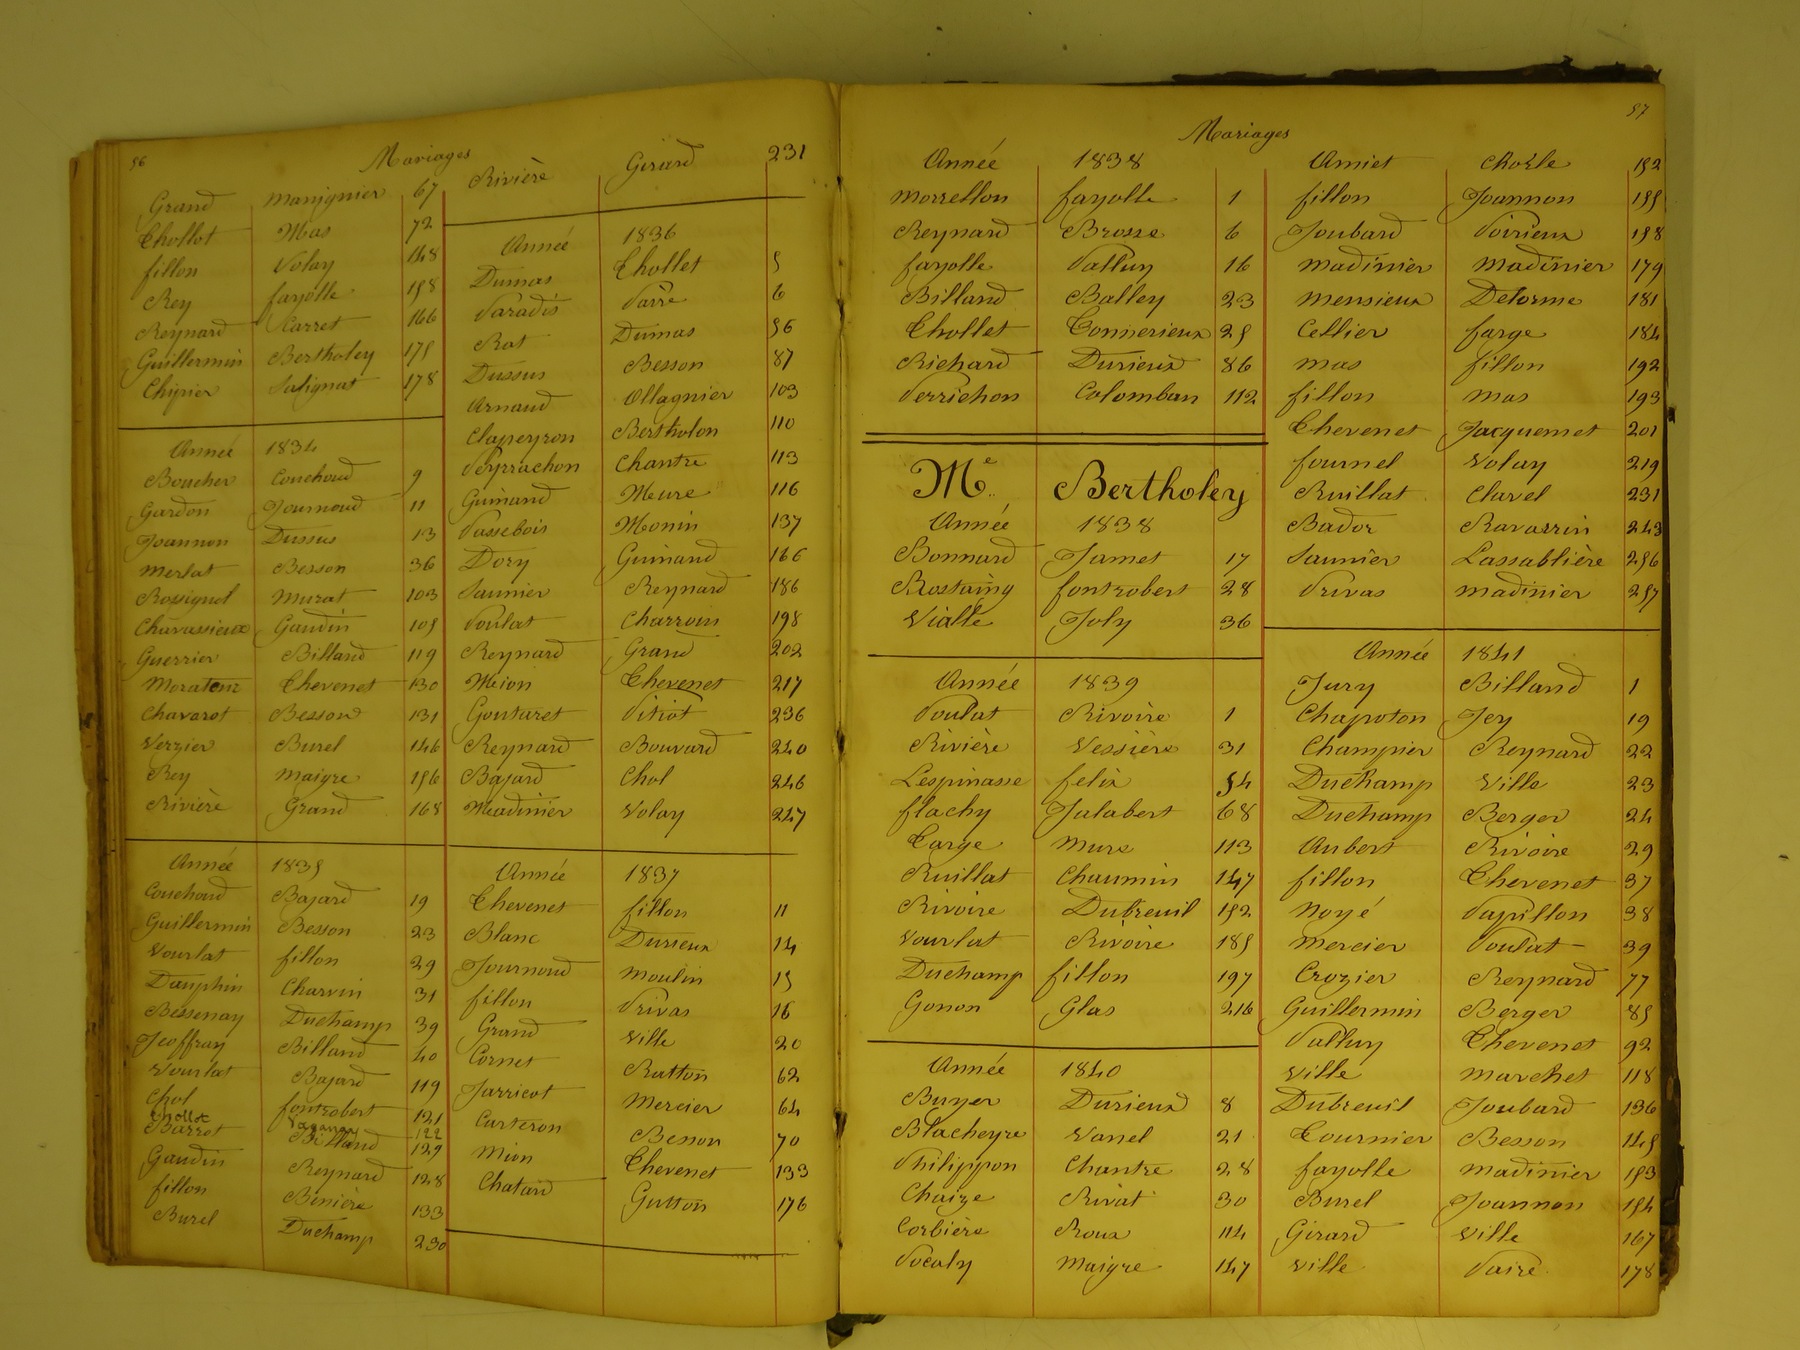 56
Mariages
Grand Manignier 67
Chollet Mas 72
fillon Volay 148
Rey fayolle 158
Reynard Carret 166
Guillermin Bertholey 175
Chipier Salignat 178
Année 1834
Boucher Couchoud 9
Gardon Journoud 11
Joannon Dussus 13
Merlat Besson 36
Rossignol Murat 103
Chavassieux Gaudin 105
Guerrier Billand 119
Morateur Chevenet 130
Chavarot Besson 131
Verzier Burel 146
Rey Maigre 156
Rivière Grand 168
Année 1835
Couchoud Bajard 19
Guillermin Besson 23
Vourlat fillon 29
Dauphin Charvin 31
Bessenay Duchamp 39
Jeoffray Billand 40
Vourlat Bajard 119
Chol fontrobert 121
Chollet 122
Barrot Billand 129
Gaudin Reynard 128
fillon Benière 133
Burel Duchamp 230
Rivière Girard 231
Année 1836
Dumas Chollet 5
Paradis Parre 6
Rat Dumas 56
Dussus Besson 87
Arnaud Ollagnier 103
Clapeyron Bertholon 110
Peyrrachon Chantre 113
Guinand Meure 116
Passebois Monin 137
Dory Guinand 166
Saunier Reynard 186
Poulat Charroin 198
Reynard Grand 202
Meion Chevenet 217
Goutaret Pitiot 236
Reynard Bouvard 240
Bajard Chol 246
Madinier Volay 247
Année 1837
Chevenet fillon 11
Blanc Durieux 14
Journoud Moulin 15
fillon Privas 16
Grand Ville 20
Cornet Ratton 62
Jarricot Mercier 64
Carteron Besson 70
Mion Chevenet 133
Chatard Gutton 176
57
Mariages
Année 1838
Morrellon fayolle 1
Reynard Brosse 6
fayolle Palluy 16
Billand Balley 23
Chollet Connerieux 25
Richard Durieux 86
Perrichon Colomban 112
Me Bertholey
Année 1838
Bonnard Jamet 17
Rostaing fontrobert 28
Vialle Joly 36
Année 1839
Poulat Rivoire 1
Rivière Vessière 31
Lespinasse felix 54
flachy Jalabert 68
Carge Murs 113
Ruillat Chaumin 147
Rivoire Dubreuil 152
Vourlat Rivoire 185
Duchamp fillon 197
Gonon Glas 216
Année 1840
Buyer Durieux 8
Blacheyre Vanel 21
Philippon Chantre 28
Chaize Rivat 30
Corbière Roux 114
Pocaly Maigre 147
Amiet 152
fillon Joannon 155
Joubard Poirieux 158
Madinier Madinier 179
Mensieux Delorme 181
Cellier farge 184
Mas fillon 192
fillon Mas 193
Chevenet Jacquemet 201
fournel Volay 219
Ruillat Clavel 231
Bador Ravarrin 243
Saunier Lassablière 256
Privas Madinier 257
Année 1841
Jury Billand 1
Chapoton Jey 19
Champier Reynard 22
Duchamp Ville 23
Duchamp Berger 24
Aubert Rivoire 29
fillon Chevenet 37
Noyé Papillon 38
Mercier Poulat 39
Crozier Reynard 77
Guillermin Berger 85
Palluy Chevenet 92
Ville Marchet 118
Dubreuil Joubard 136
Cournier Besson 145
fayolle Madinier 153
Burel Joannon 154
Girard Ville 167
Ville Paire 178